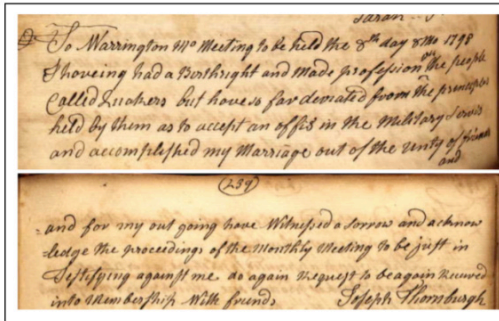 Sarah
To Warrington Mo Meeting to be held the 8th day 8 Mo 1798
I haveing had a Birthright and made profession with the people
Called Quakers but have so far deviated from the principles
held by them as to accept an offis in the Military Servis
and accomplished my Marriage out of the unity of friends
and
(239)
and for my out going have Witnessed a sorrow and acknow
ledge the proceedings of the Monthly Meeting to be just in
Testifying against me do again Request to be again Received
into Membership With friends Joseph Thornburgh